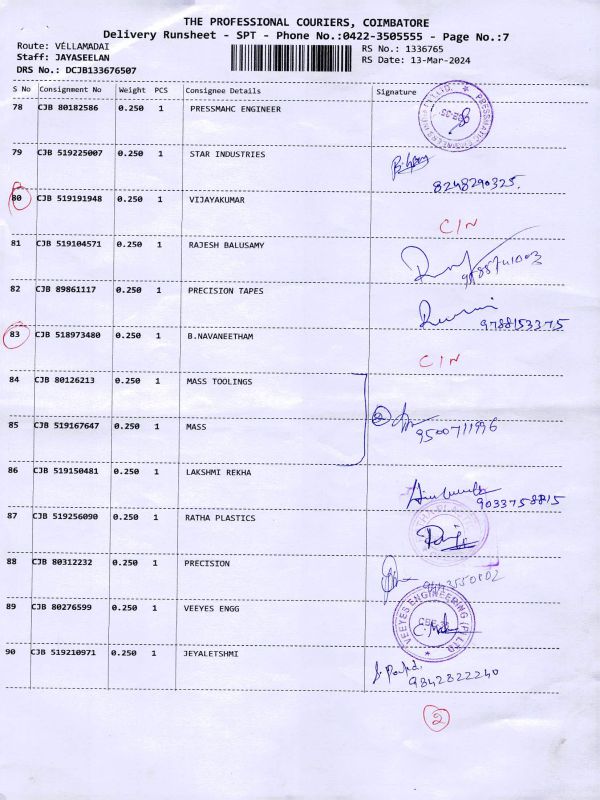 THE PROFESSIONAL COURIERS, COIMBATORE
Delivery Runsheet - SPT - Phone No.:0422-3505555 - Page No.:7
Route: VELLAMADAI
RS No.: 1336765
Staff: JAYASEELAN
RS Date: 13-Mar-2024
DRS No.: DCJB133676507
S No Consignment No Weight PCS Consignee Details Signature
78 CJB 80182586 0.250 1 PRESSMAHC ENGINEER
79 CJB 519225007 0.250 1 STAR INDUSTRIES
8248290325.
80 CJB 519191948 0.250 1 VIJAYAKUMAR
CIN
81 CJB 519104571 0.250 1 RAJESH BALUSAMY
82 CJB 89861117 0.250 1 PRECISION TAPES
9788153375
83 CJB 518973480 0.250 1 B.NAVANEETHAM
CIN
84 CJB 80126213 0.250 1 MASS TOOLINGS
85 CJB 519167647 0.250 1 MASS
9500711996
86 CJB 519150481 0.250 1 LAKSHMI REKHA
9033758815
87 CJB 519256090 0.250 1 RATHA PLASTICS
88 CJB 80312232 0.250 1 PRECISION
89 CJB 80276599 0.250 1 VEEYES ENGG
VEEYES ENGINEERING (P) LTD
90 CJB 519210971 0.250 1 JEYALETSHMI
9842822240
2